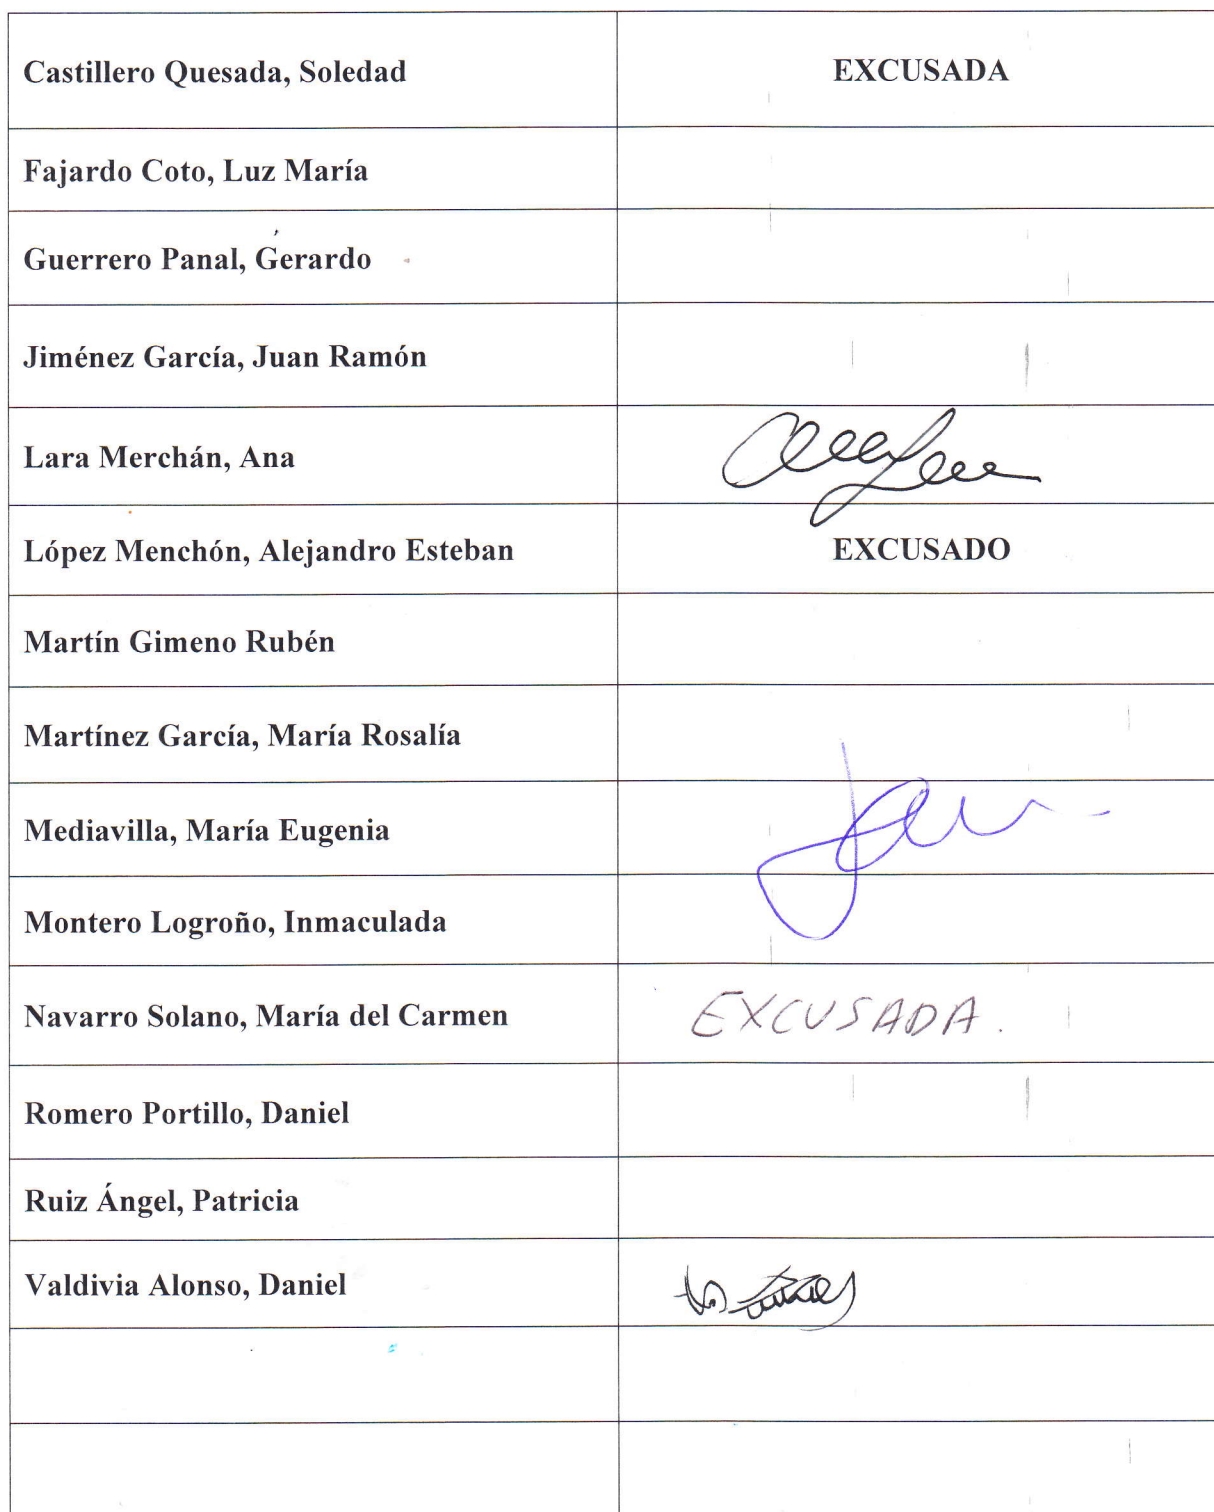 Castillero Quesada, Soledad EXCUSADA
Fajardo Coto, Luz María
Guerrero Panal, Gerardo
Jiménez García, Juan Ramón
Lara Merchán, Ana
López Menchón, Alejandro Esteban EXCUSADO
Martín Gimeno Rubén
Martínez García, María Rosalía
Mediavilla, María Eugenia
Montero Logroño, Inmaculada
Navarro Solano, María del Carmen EXCUSADA.
Romero Portillo, Daniel
Ruiz Ángel, Patricia
Valdivia Alonso, Daniel